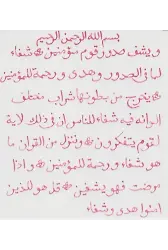 بسم الله الرحمن الرحيم
ويشف صدور قوم مؤمنين * شفاء
لما في الصدور وهدى ورحمة للمؤمنين
* يخرج من بطونها شراب مختلف
الوانه فيه شفاء للناس ان في ذلك لاية
لقوم يتفكرون * وننزل من القران ما
هو شفاء ورحمة للمؤمنين * واذا
مرضت فهو يشفين * قل هو للذين
امنوا هدى وشفاء